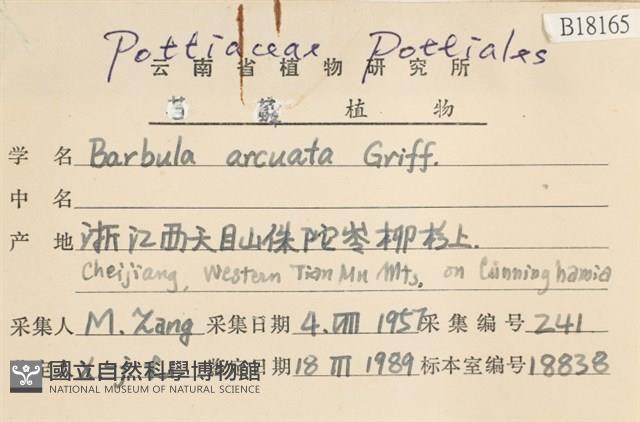 B18165
Pottiaceae Pottiales
云南省植物研究所
苔藓植物
学名 Barbula arcuata Griff.
中名
产地 浙江西天目山侏陀岺柳杉上.
Cheijiang, Western TianMu Mts, on Cunninghamia
采集人 M. Zang 采集日期 4. VIII 1957 采集编号 241
日期 18 III 1989 标本室编号 18838
國立自然科學博物館
NATIONAL MUSEUM OF NATURAL SCIENCE